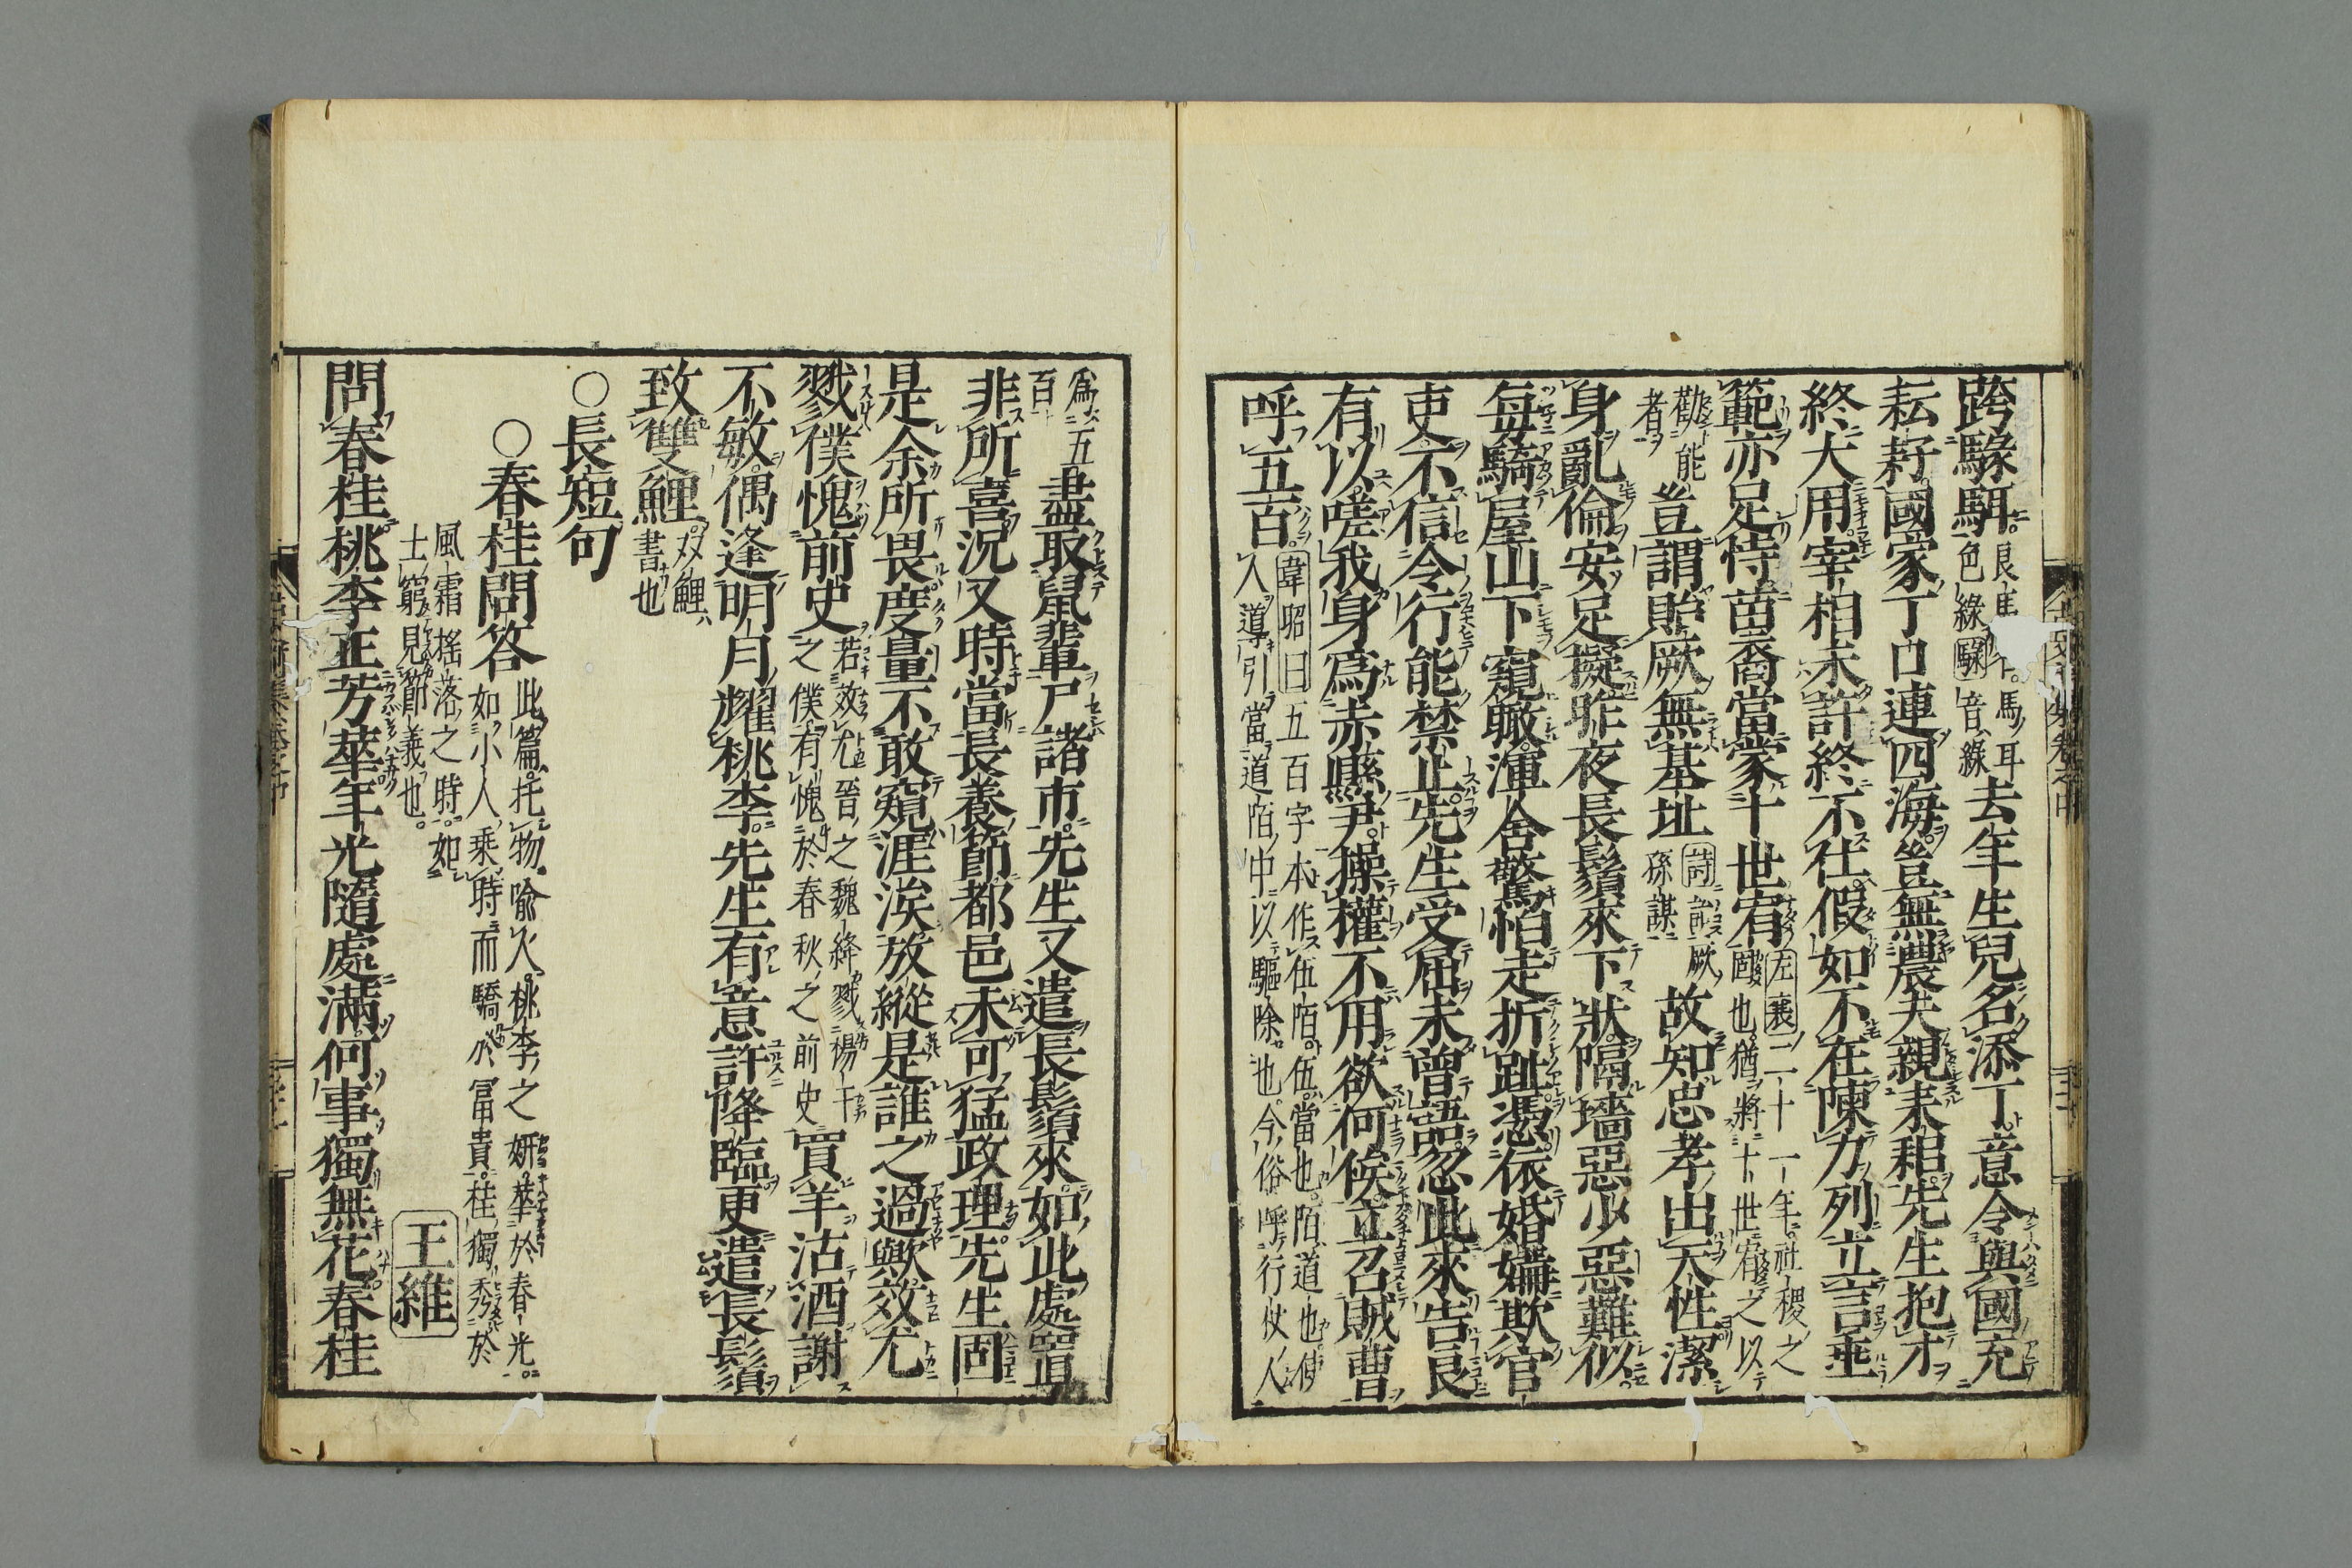 跨騄駬良馬馬耳色綠騄音綠去年生兒名添丁意令與國充
耘耔國家丁口連四海豈無農夫親耒耜先生抱才
終大用宰相未許終不仕假如不在陳力列立言垂
範亦足恃苗裔當蒙十世宥左襄二十一年社稷之固也猶將十世宥之以
勸能者豈謂貽厥無基址詩詒厥孫謀故知忠孝出天性潔
身亂倫安足擬昨夜長鬚來下狀隔墻惡少惡難似
每騎屋山下窺瞰渾舍驚怕走折趾憑依婚媾欺官
吏不信令行能禁止先生受屈未曾語忽此來告良
有以嗟我身為赤縣尹操權不用欲何俟立召賊曹
呼五百韋昭曰五百字本作伍陌伍當也陌道也使人導引當道陌中以驅除也今俗呼行仗人
為五百盡取鼠輩尸諸市先生又遣長鬚來如此處置
非所喜況又時當長養節都邑未可猛政理先生固
是余所畏度量不敢窺涯涘放縱是誰之過歟效尤
戮僕愧前史若效尤晉之魏絳戮楊干之僕有愧於春秋之前史買羊沽酒謝
不敏偶逢明月耀桃李先生有意許降臨更遣長鬚
致雙鯉双鯉書也
○長短句
○春桂問答此篇托物喻人桃李之妍華於春光如小人乘時而驕於冨貴桂獨秀於
風霜搖落之時如士窮見節義也
王維
問春桂桃李正芳華年光隨處滿何事獨無花春桂